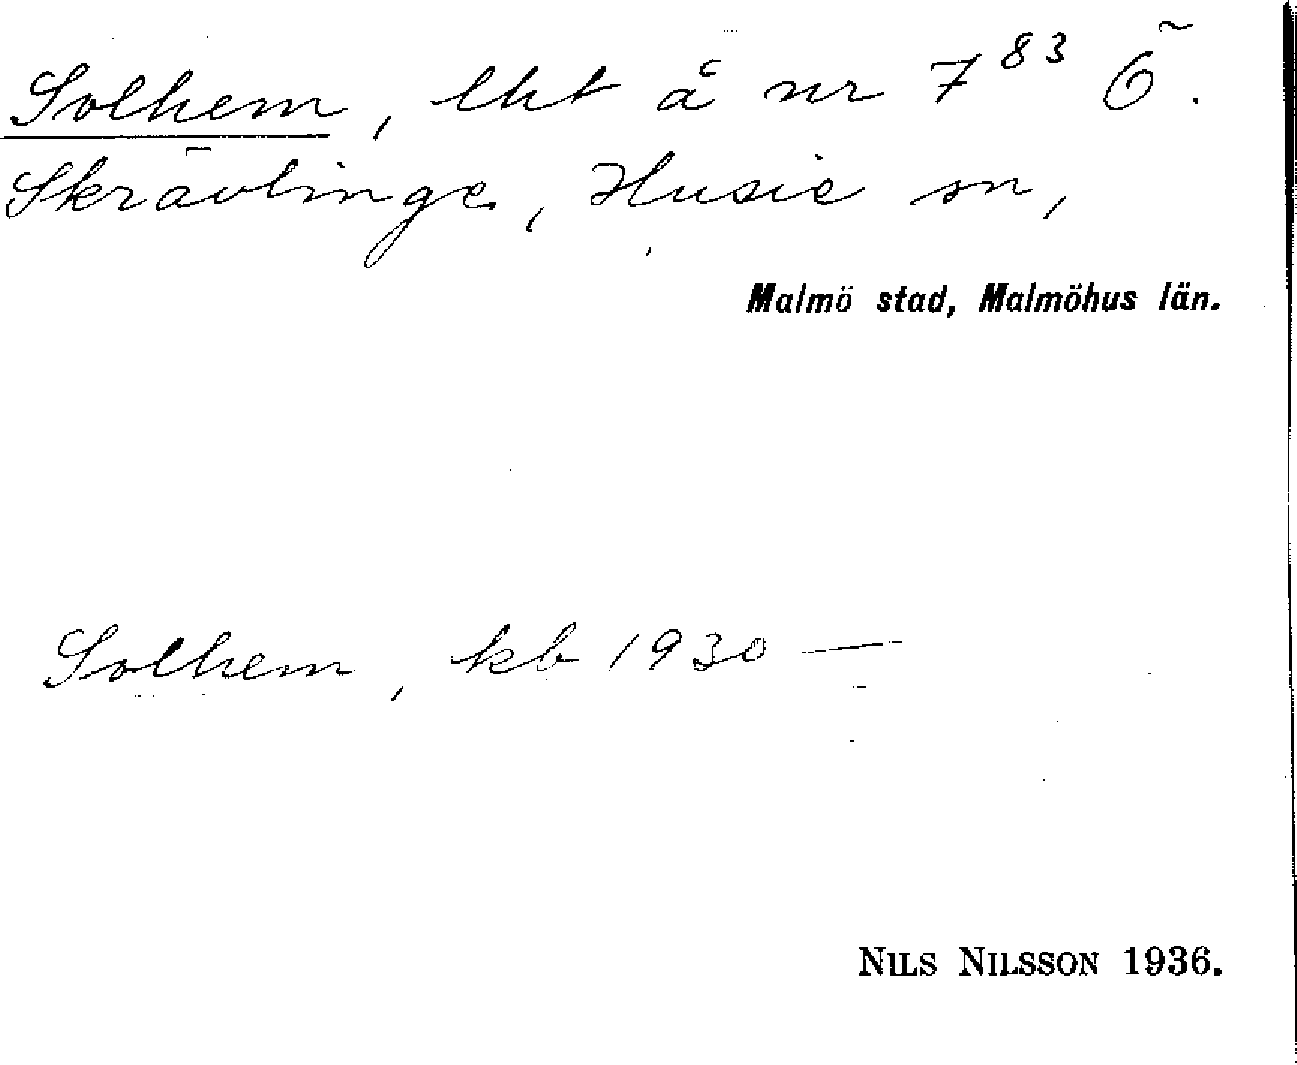 Solhem, lht å nr 7⁸³ Ö.
Skrävlinge, Husie sn,
Malmö stad, Malmöhus län.
Solhem, kb 1930 —
NILS NILSSON 1936.